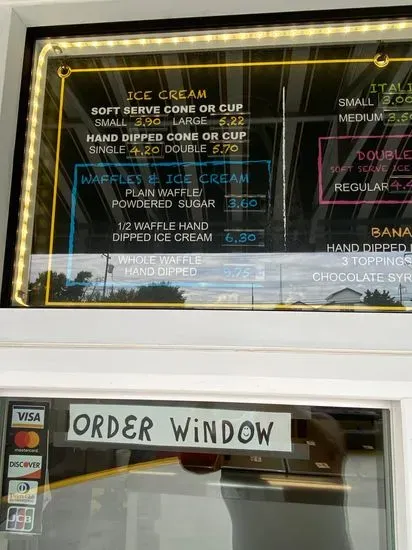 ICE CREAM
SOFT SERVE CONE OR CUP
SMALL 3.90 LARGE 5.22
HAND DIPPED CONE OR CUP
SINGLE 4.20 DOUBLE 5.70
WAFFLES & ICE CREAM
PLAIN WAFFLE/
POWDERED SUGAR 3.60
1/2 WAFFLE HAND
DIPPED ICE CREAM 6.30
WHOLE WAFFLE
HAND DIPPED 9.75
ITALI
SMALL 3.00
MEDIUM 3.5
DOUBLE
SOFT SERVE ICE
REGULAR 4.
BANA
HAND DIPPED
3 TOPPINGS
CHOCOLATE SYR
ORDER WiNDOW
VISA
mastercard
DISCOVER
JCB